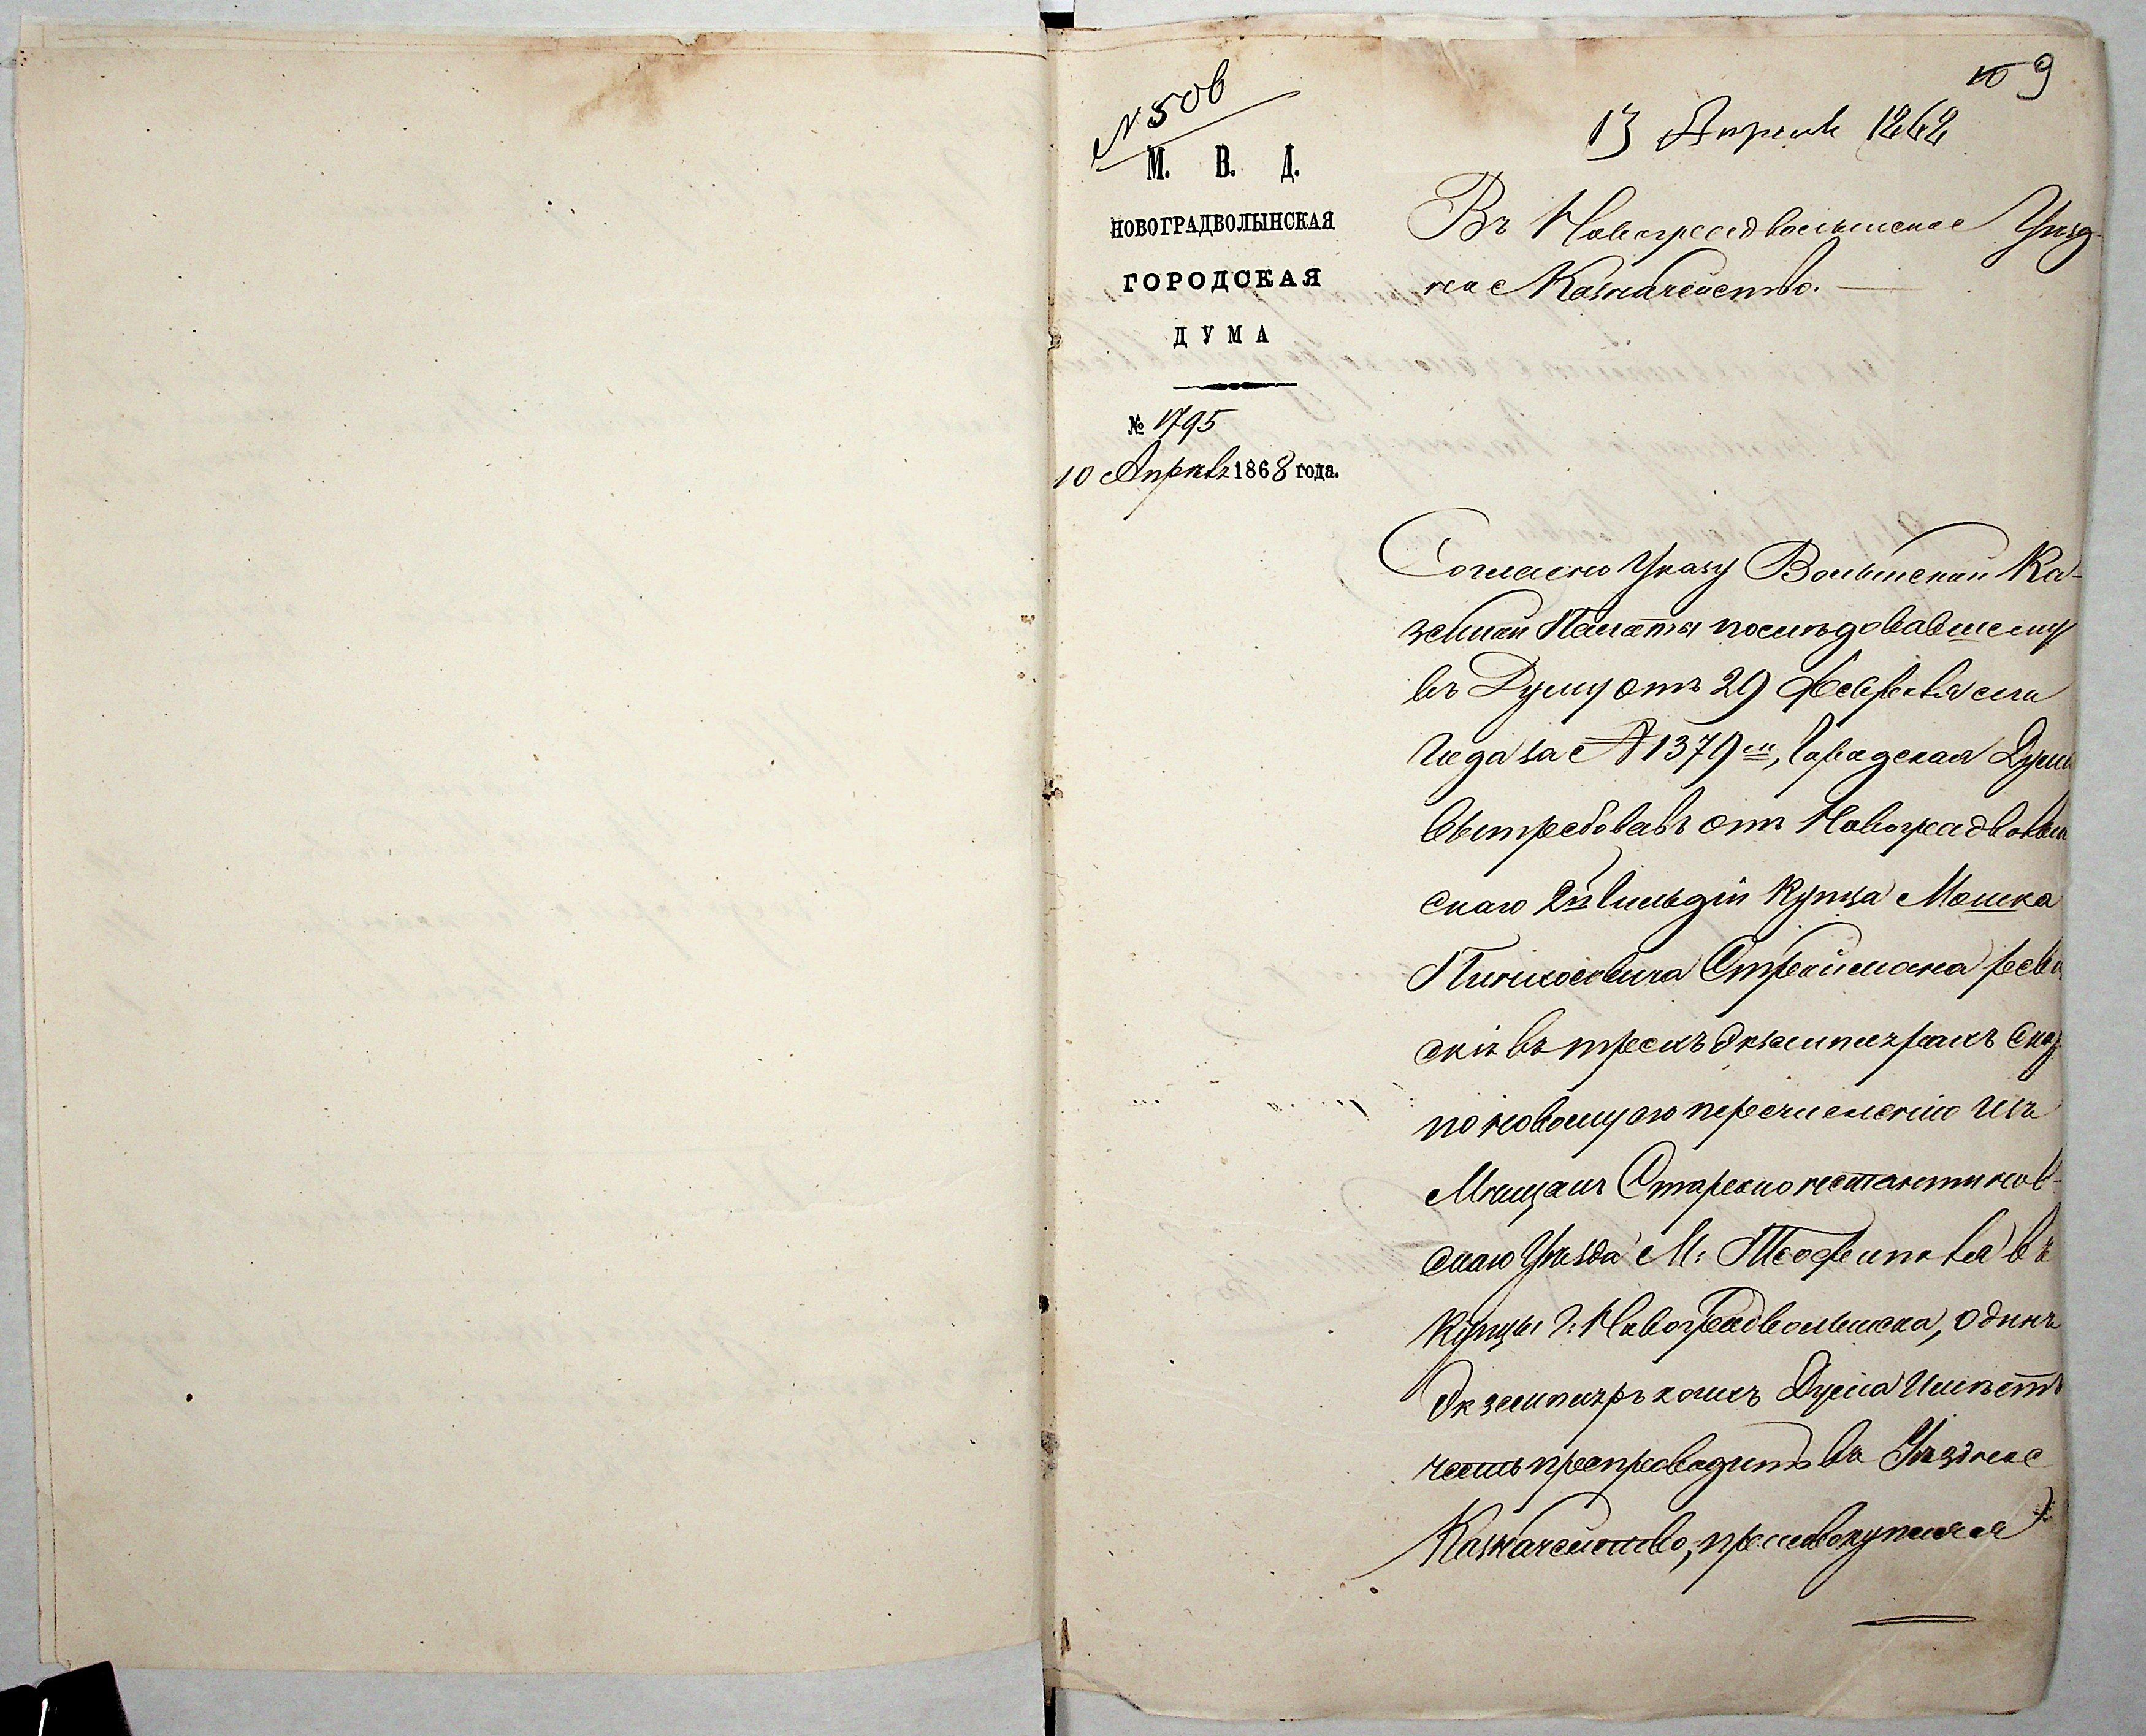 9
N 506
13 Апреля 1868
М. В. Д.
НОВОГРАДВОЛЫНСКАЯ
ГОРОДСКАЯ
ДУМА
№ 1795
10 Апреля 1868 года.
Въ Новоградволынское Уѣзд-
ное Казначейство.
Согласно Указу Волынской Ка-
зенной Палаты послѣдовавшему
въ Думу отъ 29 Февраля сего
года за № 1379м, Городская Дума
вытребовавъ отъ Новоградволын
скаго 2й гильдіи Купца Мошка
Пинхосовича Стрейсмана
въ трехъ экземплярахъ
по новому его перечисленію изъ
Мѣщанъ Староконстантинов-
скаго Уѣзда М: Теофиполя въ
Купцы г: Новоградволынска, одинъ
экземпляръ коихъ Дума имѣетъ
честь препроводить въ Уѣздное
Казначейство, присовокупляя